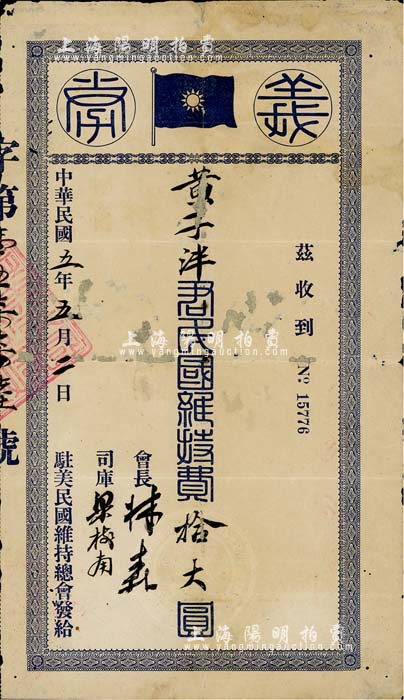 上海陽明拍賣
義舉
茲收到
№ 15776
黃子泮君民國維持費拾大圓
會長 林森
司庫 梁樹南
駐美民國維持總會發給
中華民國五年五月二日
字第
號
上海陽明拍賣
www.yangmingauction.com
上海陽明拍賣
www.yangmingauction.com